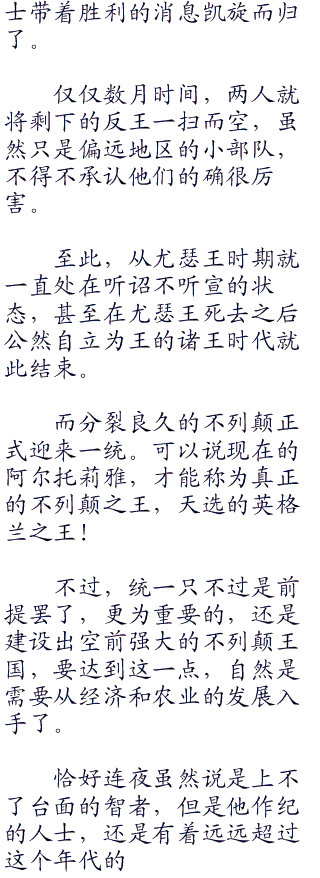 士带着胜利的消息凯旋而归
了。
仅仅数月时间，两人就
将剩下的反王一扫而空，虽
然只是偏远地区的小部队，
不得不承认他们的确很厉
害。
至此，从尤瑟王时期就
一直处在听诏不听宣的状
态，甚至在尤瑟王死去之后
公然自立为王的诸王时代就
此结束。
而分裂良久的不列颠正
式迎来一统。可以说现在的
阿尔托莉雅，才能称为真正
的不列颠之王，天选的英格
兰之王！
不过，统一只不过是前
提罢了，更为重要的，还是
建设出空前强大的不列颠王
国，要达到这一点，自然是
需要从经济和农业的发展入
手了。
恰好连夜虽然说是上不
了台面的智者，但是他作纪
的人士，还是有着远远超过
这个年代的